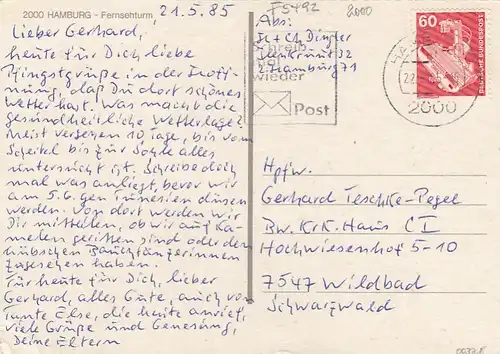 2000 HAMBURG - Fernsehturm
21.5.85
F5492
2000
Lieber Gerhard,
heute für Dich, liebe
Pfingstgrüße in der Hoff-
nung, daß Du dort schönes
Wetter hast. Was macht die
gesundheitliche Wetterlage?
Meist vergehen 10 Tage, bis vom
Scheitel bis zur Sohle alles
untersucht ist. Schreibe doch
mal was anliegt, bevor wir
am 5.6. gen Tunesien düsen
werden. Von dort werden wir
Dir mitteilen, ob wir auf Ka-
melen geritten sind oder den
hübschen Bauchtänzerinnen
zugesehen haben.
Für heute für Dich, lieber
Gerhard, alles Gute, auch von
Tante Else, die heute anrief,
viele Grüße und Genesung,
Deine Eltern
Abs:
2 Hamburg 71
Schreib
mal
wieder
Post
60
DEUTSCHE BUNDESPOST
2000
Hptfw.
Gerhard Teschke-Pegel
Bw. Krk. Haus CI
Hochwiesenhof 5-10
7547 Wildbad
Schwarzwald